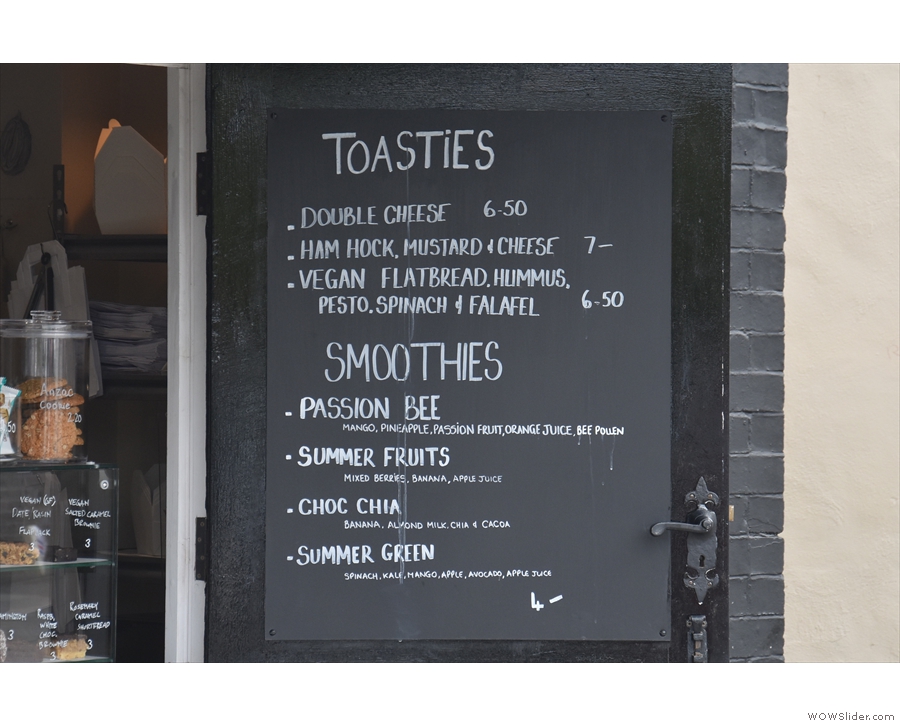 TOASTIES
- DOUBLE CHEESE 6-50
- HAM HOCK, MUSTARD & CHEESE 7-
- VEGAN FLATBREAD, HUMMUS,
PESTO, SPINACH & FALAFEL 6-50
SMOOTHIES
- PASSION BEE
MANGO, PINEAPPLE, PASSION FRUIT, ORANGE JUICE, BEE POLLEN
- SUMMER FRUITS
MIXED BERRIES, BANANA, APPLE JUICE
- CHOC CHIA
BANANA, ALMOND MILK, CHIA & CACOA
- SUMMER GREEN
SPINACH, KALE, MANGO, APPLE, AVOCADO, APPLE JUICE
4-
Anzac
Cookie
2.20
VEGAN (GF)
DATE RAISIN
FLAPJACK
3
VEGAN
SALTED CARAMEL
BROWNIE
3
3
RASP,
WHITE
CHOC,
BROWNIE
3
ROSEMARY
CARAMEL
SHORTBREAD
3
WOWSlider.com